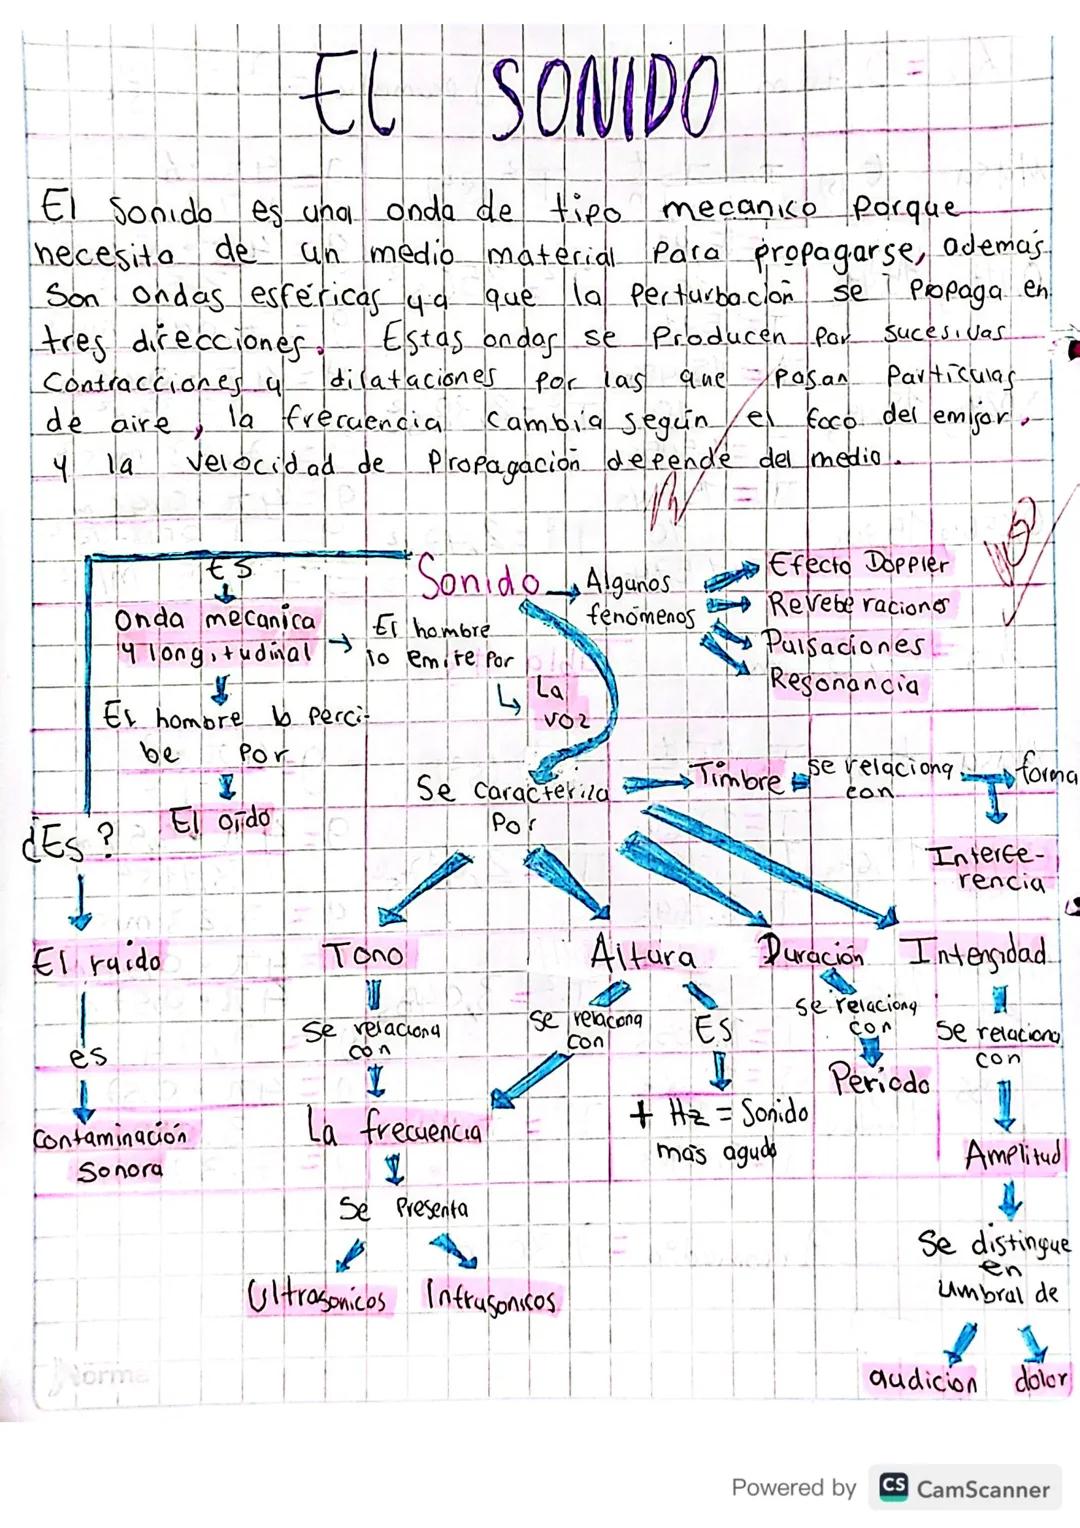 EL SONIDO
El sonido es una onda de tipo mecanico porque
necesita de un medio material para propagarse, además
son ondas esféricas ya que la perturbación se propaga en
tres direcciones. Estas ondas se producen por sucesivas
contracciones y dilataciones por las que pasan partículas
de aire, la frecuencia cambia según el foco del emisor,
y la velocidad de propagación depende del medio.
Sonido
ES
Onda mecanica
y longitudinal
El hombre
lo emite por
La
voz
El hombre lo perci-
be por
El oído
Algunos
fenómenos
Efecto Doppler
Reveberaciones
Pulsaciones
Resonancia
Se caracteriza
Por
Timbre
se relaciona
con
forma
Interfe-
rencia
¿Es?
El ruido
es
contaminación
Sonora
Tono
Se relaciona
con
La frecuencia
Se Presenta
Ultrasonicos
Infrasonicos
Altura
Se relacona
con
ES
+ Hz = Sonido
más agudo
Duración
se relaciona
con
Periodo
Intensidad
Se relaciona
con
Amplitud
Se distingue
en
umbral de
audicion
dolor
Norma
Powered by CS CamScanner